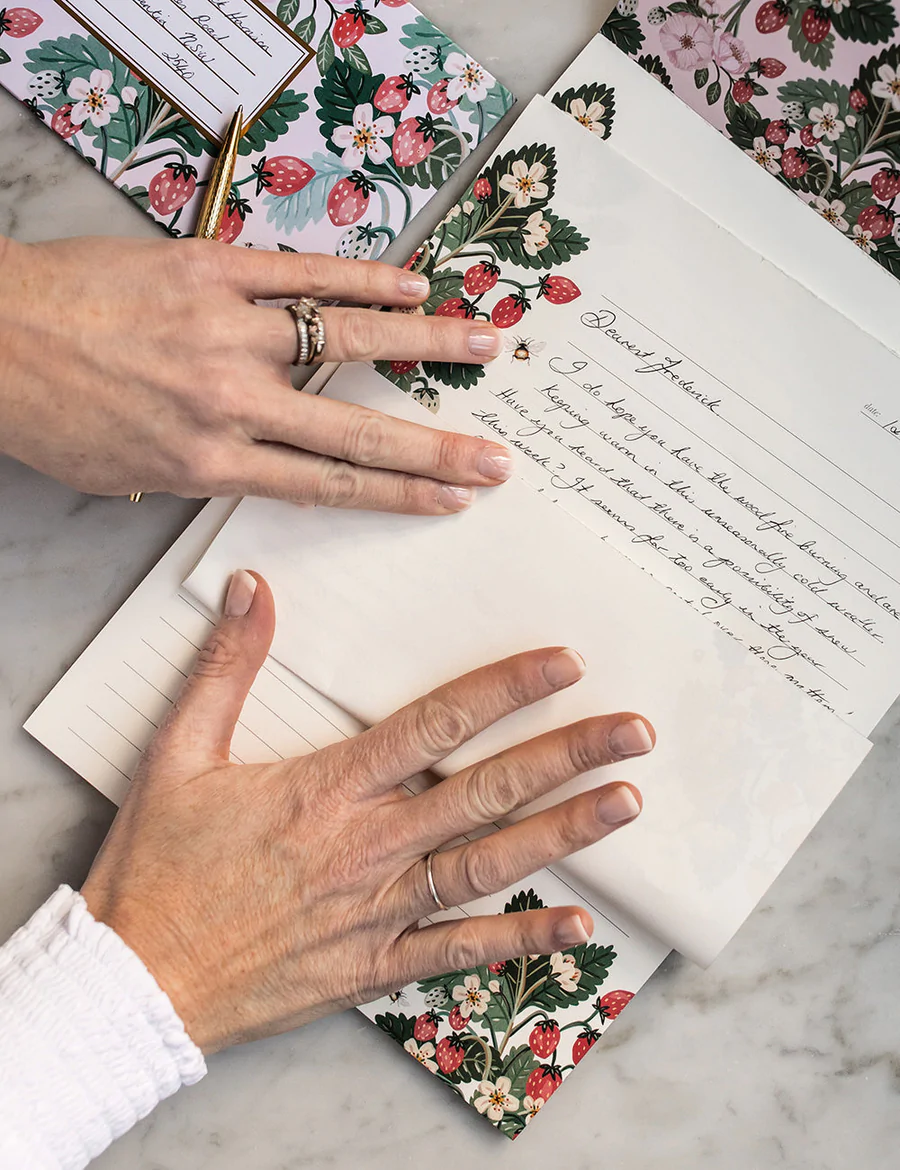 Road
N.S.W
2540
date:
Dearest Frederick
I do hope you have the wood fire burning and are
keeping warm in this unseasonally cold weather
Have you heard that there is a possibility of snow
this week? It seems far too early in the year